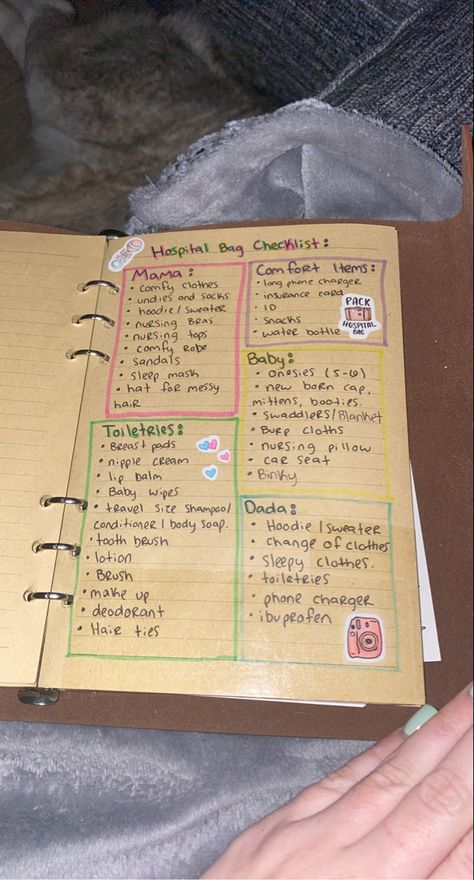 Hospital Bag Checklist:
Mama:
• comfy clothes
• undies and socks
• hoodie / sweater
• nursing Bras
• nursing tops
• comfy robe
• sandals
• sleep mask
• hat for messy
hair
Comfort Items:
• long phone charger
• insurance card
• ID
• snacks
• water bottle
PACK
HOSPITAL
BAG
Baby:
• onesies (5-6)
• new born cap,
mittens, booties.
• swaddlers/Blanket
• Burp cloths
• nursing pillow
• car seat
• Binky
Toiletries:
• Breast pads
• nipple cream
• lip balm
• Baby wipes
• travel size shampoo/
conditioner / body soap.
• tooth brush
• lotion
• Brush
• make up
• deodorant
• Hair ties
Dada:
• Hoodie / sweater
• change of clothes
• Sleepy clothes.
• toiletries
• phone charger
• ibuprofen